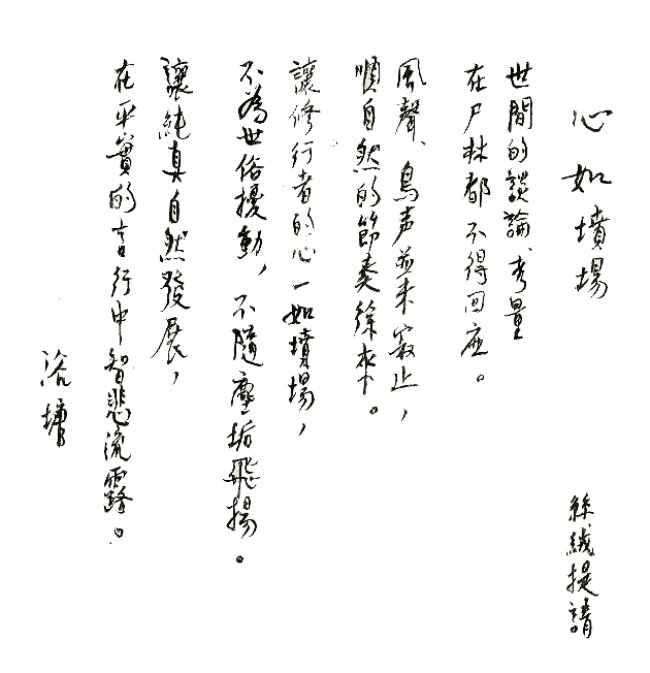 心如墳場
絲絨提請
世間的談論、考量
在尸林都不得回應。
風聲、鳥声並未寂止，
順自然的節奏徐來。
讓修行者的心一如墳場，
不為世俗擾動，不隨塵垢飛揚。
讓純真自然發展，
在平實的言行中智悲流露。
浴墉